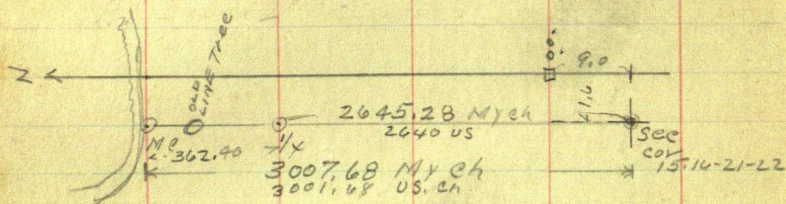 N
OLD
LINE TREE
00.
9.0
21.6
2645.28 My ch
2640 US
MC
362.40
1/4
Sec
cor
15.16-21-22
3007.68 My Ch
3001.68 US. Ch